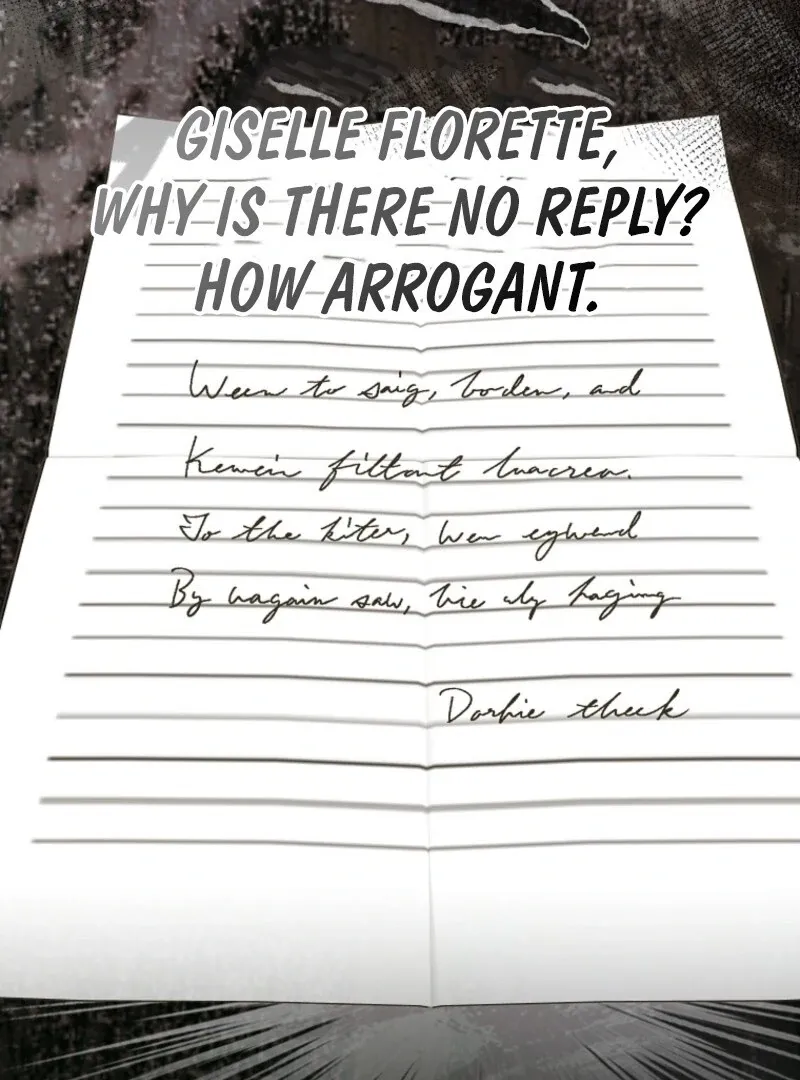 GISELLE FLORETTE,
WHY IS THERE NO REPLY?
HOW ARROGANT.
Ween to saig, borden, and
Kewein filtont luacrea.
To the kiter, wen eghwend
By uagain saw, bie aly haging
Dorhie theek